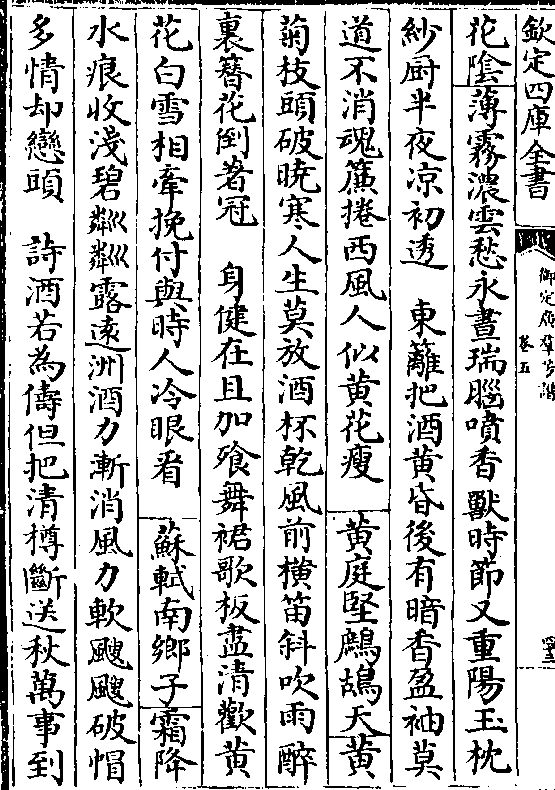 欽定四庫全書
御定廣羣芳譜
卷五
花陰薄霧濃雲愁永晝瑞腦噴香獸時節又重陽玉枕
紗厨半夜凉初透　東籬把酒黄昏後有暗香盈袖莫
道不消魂簾捲西風人似黄花瘦　黄庭堅鷓鴣天黄
菊枝頭破曉寒人生莫放酒杯乾風前横笛斜吹雨醉
裏簪花倒著冠　身健在且加飱舞裙歌板盡清歡黄
花白雪相牽挽付與時人冷眼看　蘇軾南鄉子霜降
水痕收淺碧粼粼露遠洲酒力漸消風力軟颼颼破帽
多情却戀頭　詩酒若為儔但把清樽斷送秋萬事到